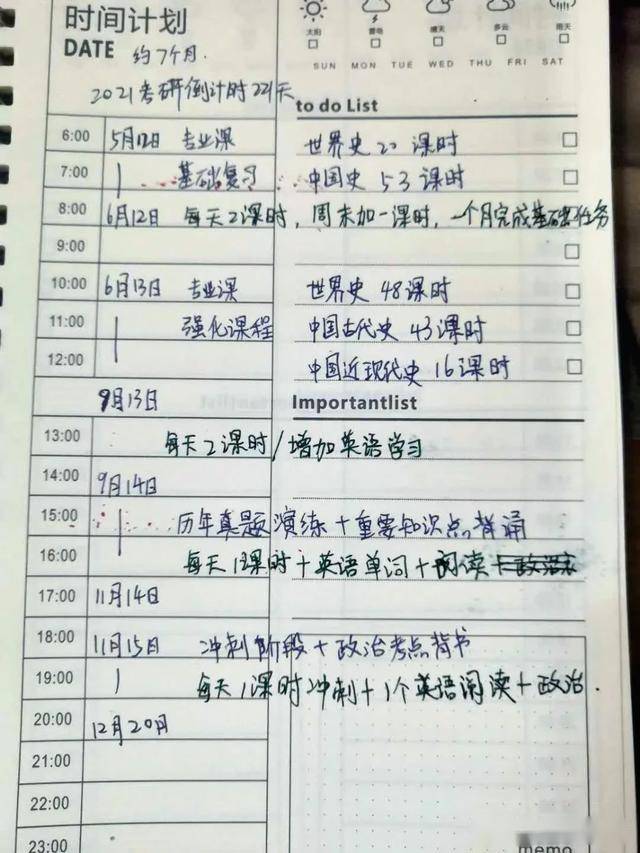 时间计划
DATE 约7个月.
太阳 雷电 晴天 多云 雨天
SUN MON TUE WED THU FRI SAT
2021考研倒计时221天
to do List
6:00 5月12日 专业课 世界史 22 课时
7:00 基础复习 中国史 53 课时
8:00 6月12日 每天2课时，周末加一课时，一个月完成基础任务
9:00
10:00 6月13日 专业课 世界史 48课时
11:00 强化课程 中国古代史 43课时
12:00 中国近现代史 16课时
9月13日 Importantlist
13:00 每天2课时/增加英语学习
14:00 9月14日
15:00 历年真题演练+重要知识点背诵
16:00 每天1课时+英语单词+阅读
17:00 11月14日
18:00 11月15日 冲刺阶段+政治考点背书
19:00 每天1课时冲刺+1个英语阅读+政治.
20:00 12月20日
21:00
22:00
23:00 memo